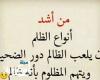 من أشد
أنواع الظلم
أن يلعب الظالم دور الضحية
ويتهم المظلوم بأنه